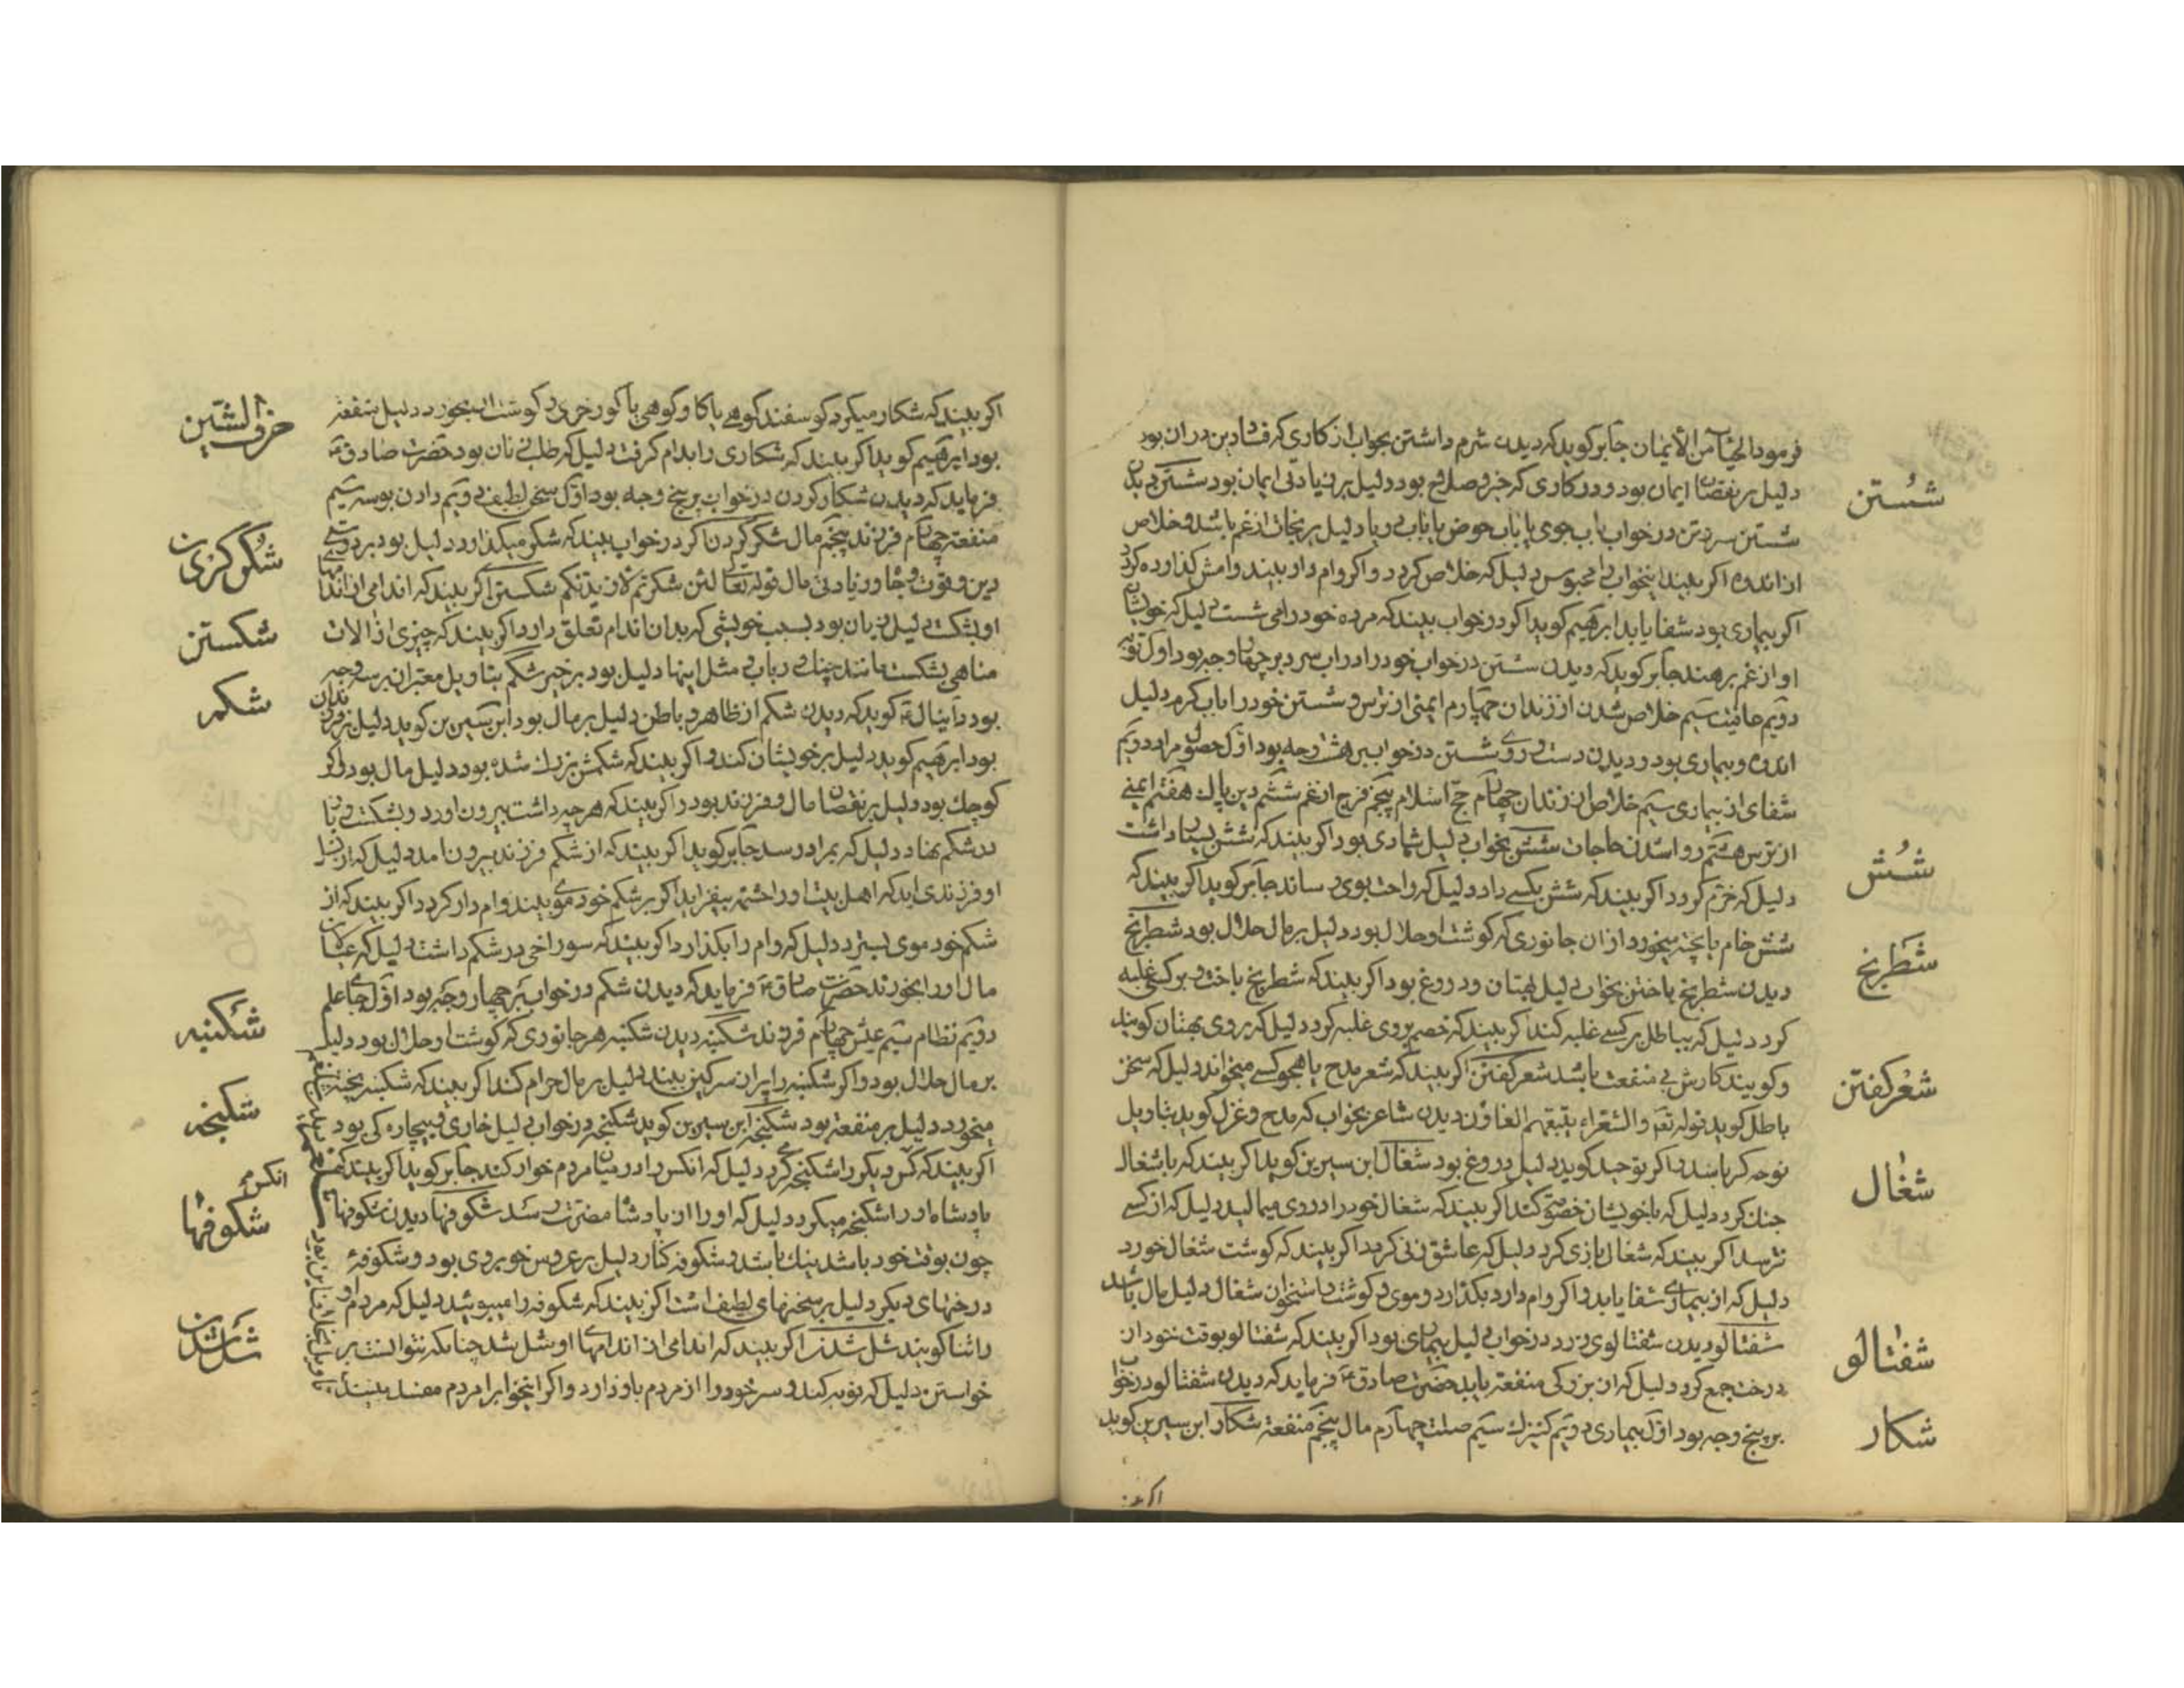 فرمود الحیاء من الایمان جابر کوید که دیدن شرم داشتن بخواب از کاری که فساد دین دران بود
دلیل بر نقصان ایمان بود و در کاری که خیر و صلاح بود دلیل بر زیادتی ایمان بود شستن دیدن
شستن سر و تن در خواب باب جوی یا باب حوض یا باب دریا دلیل بر نجات از غم باشد و خلاص
از اندوه اکر بیند اینخواب را محبوس دلیل که خلاص کردد و اکر وام دار بیند وامش کذارده کردد
اکر بیماری بود شفا یابد ابرهیم کوید اکر در خواب بیند که مرده خود را می شست دلیل که خویشان
او از غم برهند جابر کوید که دیدن شستن در خواب خود را در اب سرد بر چهار وجه بود اول توبه
دویم عافیت سیم خلاص شدن از زندان چهارم ایمنی از ترس و شستن خود را باب کرم دلیل
اندوه و بیماری بود و دیدن دست و روی شستن در خواب بر هشت وجه بود اول حصول مراد دویم
شفای از بیماری سیم خلاص از زندان چهارم حج اسلام پنجم فرج از غم ششم دین پاک هفتم ایمنی
از ترس هشتم روا شدن حاجات شش بخواب دلیل شادی بود اکر بیند که شش بسیار داشت
دلیل که خرم کردد اکر بیند که شش بکسی داد دلیل که راحت بوی رساند جابر کوید اکر بیند که
شش خام یا پخته میخورد از ان جانوری که کوشت او حلال بود دلیل بر مال حلال بود شطرنج
دیدن شطرنج باختن بخواب دلیل بهتان و دروغ بود اکر بیند که شطرنج باخت و بر کسی غلبه
کرد دلیل که بباطل بر کسی غلبه کند اکر بیند که خصم بر وی غلبه کرد دلیل که بر وی بهتان کویند
و کویند کارش بی منفعت باشد شعر کفتن اکر بیند که شعر مدح یا هجو کسی میخواند دلیل که سخن
باطل کوید قوله تعم والشعراء یتبعهم الغاون دیدن شاعر بخواب که مدح و غزل کوید بتاویل
نوحه کر باشد و اکر توحید کوید دلیل دروغ بود شغال ابن سیرین کوید اکر بیند که با شغال
جنک کرد دلیل که با خویشان خصومت کند اکر بیند که شغال خود را در وی میمالید دلیل که از کسی
ترسد اکر بیند که شغال بازی کرد دلیل که عاشق زنی کردد اکر بیند که کوشت شغال خورد
دلیل که از بیماری شفا یابد و اکر وام دارد بکذارد و موی و کوشت و استخوان شغال دلیل مال باشد
شفتالو دیدن شفتالوی زرد در خواب دلیل بیماری بود اکر بیند که شفتالو بوقت خود از
درخت جمع کرد دلیل که از بزرکی منفعت یابد حضرت صادق ع فرماید که دیدن شفتالو در خواب
بر پنج وجه بود اول بیماری دویم کنیزک سیم صلت چهارم مال پنجم منفعت شکار ابن سیرین کوید
شستن
شش
شطرنج
شعر کفتن
شغال
شفتالو
شکار
اکر
اکر بیند که شکار میکرد کوسفند کوهی یا کاو کوهی یا کور خری و کوشت ان بخورد دلیل منفعت
بود ابرهیم کوید اکر بیند که شکاری را بدام کرفت دلیل که طلب نان بود حضرت صادق ع
فرماید که دیدن شکار کردن در خواب بر پنج وجه بود اول سخن لطیف دویم دادن بوسه سیم
منفعت چهارم فرزند پنجم مال شکر کردن اکر در خواب بیند که شکر میکذارد دلیل بود بر درستی
دین و قوت و جاه و زیادتی مال قوله تعالی لئن شکرتم لازیدنکم شکستن اکر بیند که اندامی از اندامها
او بشکست دلیل زیان بود بسبب خویشی که بدان اندام تعلق دارد اکر بیند که چیزی از الات
مناهی بشکست مانند چنک و رباب و مثل اینها دلیل بود بر خیر شکم بتاویل معتبران بر سه وجه
بود دانیال ع کوید که دیدن شکم از ظاهر و باطن دلیل بر مال بود ابن سیرین کوید دلیل بر فرزندان
بود ابرهیم کوید دلیل بر خویشان کند و اکر بیند که شکمش بزرک شده بود دلیل مال بود و اکر
کوچک بود دلیل بر نقصان مال و فرزند بود و اکر بیند که هرچه داشت بیرون اورد و بشکست و باز
در شکم نهاد دلیل که بمراد رسد جابر کوید اکر بیند که از شکم فرزند بیرون امد دلیل که از نسل
او فرزندی اید که اهل بیت او را حشمت بیفزاید اکر بر شکم خود موی بیند وام دار کردد اکر بیند که از
شکم خود موی بسترد دلیل که وام را بکذارد اکر بیند که سوراخی در شکم داشت دلیل که عیالان
مال او را بخورند حضرت صادق ع فرماید که دیدن شکم در خواب بر چهار وجه بود اول جای علم
دویم نظام سیم عیش چهارم فرزند شکنبه دیدن شکنبه هر جانوری که کوشت او حلال بود دلیل
بر مال حلال بود و اکر شکنبه را پر از سرکین بیند دلیل بر مال حرام کند اکر بیند که شکنبه پخته
میخورد دلیل بر منفعت بود شکنجه ابن سیرین کوید شکنجه در خواب دلیل خاری و بیچاره کی بود
اکر بیند که کس دیکر را شکنجه کرد دلیل که انکس را در میان مردم خوار کند جابر کوید اکر بیند که
پادشاه او را شکنجه میکرد دلیل که او را از پادشا مضرت رسد شکوفها دیدن شکوفها
چون بوقت خود باشد نیک باشد و شکوفه کنار دلیل بر عروس خوبروی بود و شکوفه
درختهای دیکر دلیل بر سخنهای لطیف است اکر بیند که شکوفه را میبوئید دلیل که مردم او
را ثنا کویند شل شدن اکر بیند که اندامی از اندامها او شل شد چنانکه نتوانست بر
خواستن دلیل که توبه کند و سر خود را از مردم باز دارد و اکر اینخواب را مردم مفسد بیند
حرف الشین
شکر کزاری
شکستن
شکم
شکنبه
شکنجه
شکوفها
شل شدن